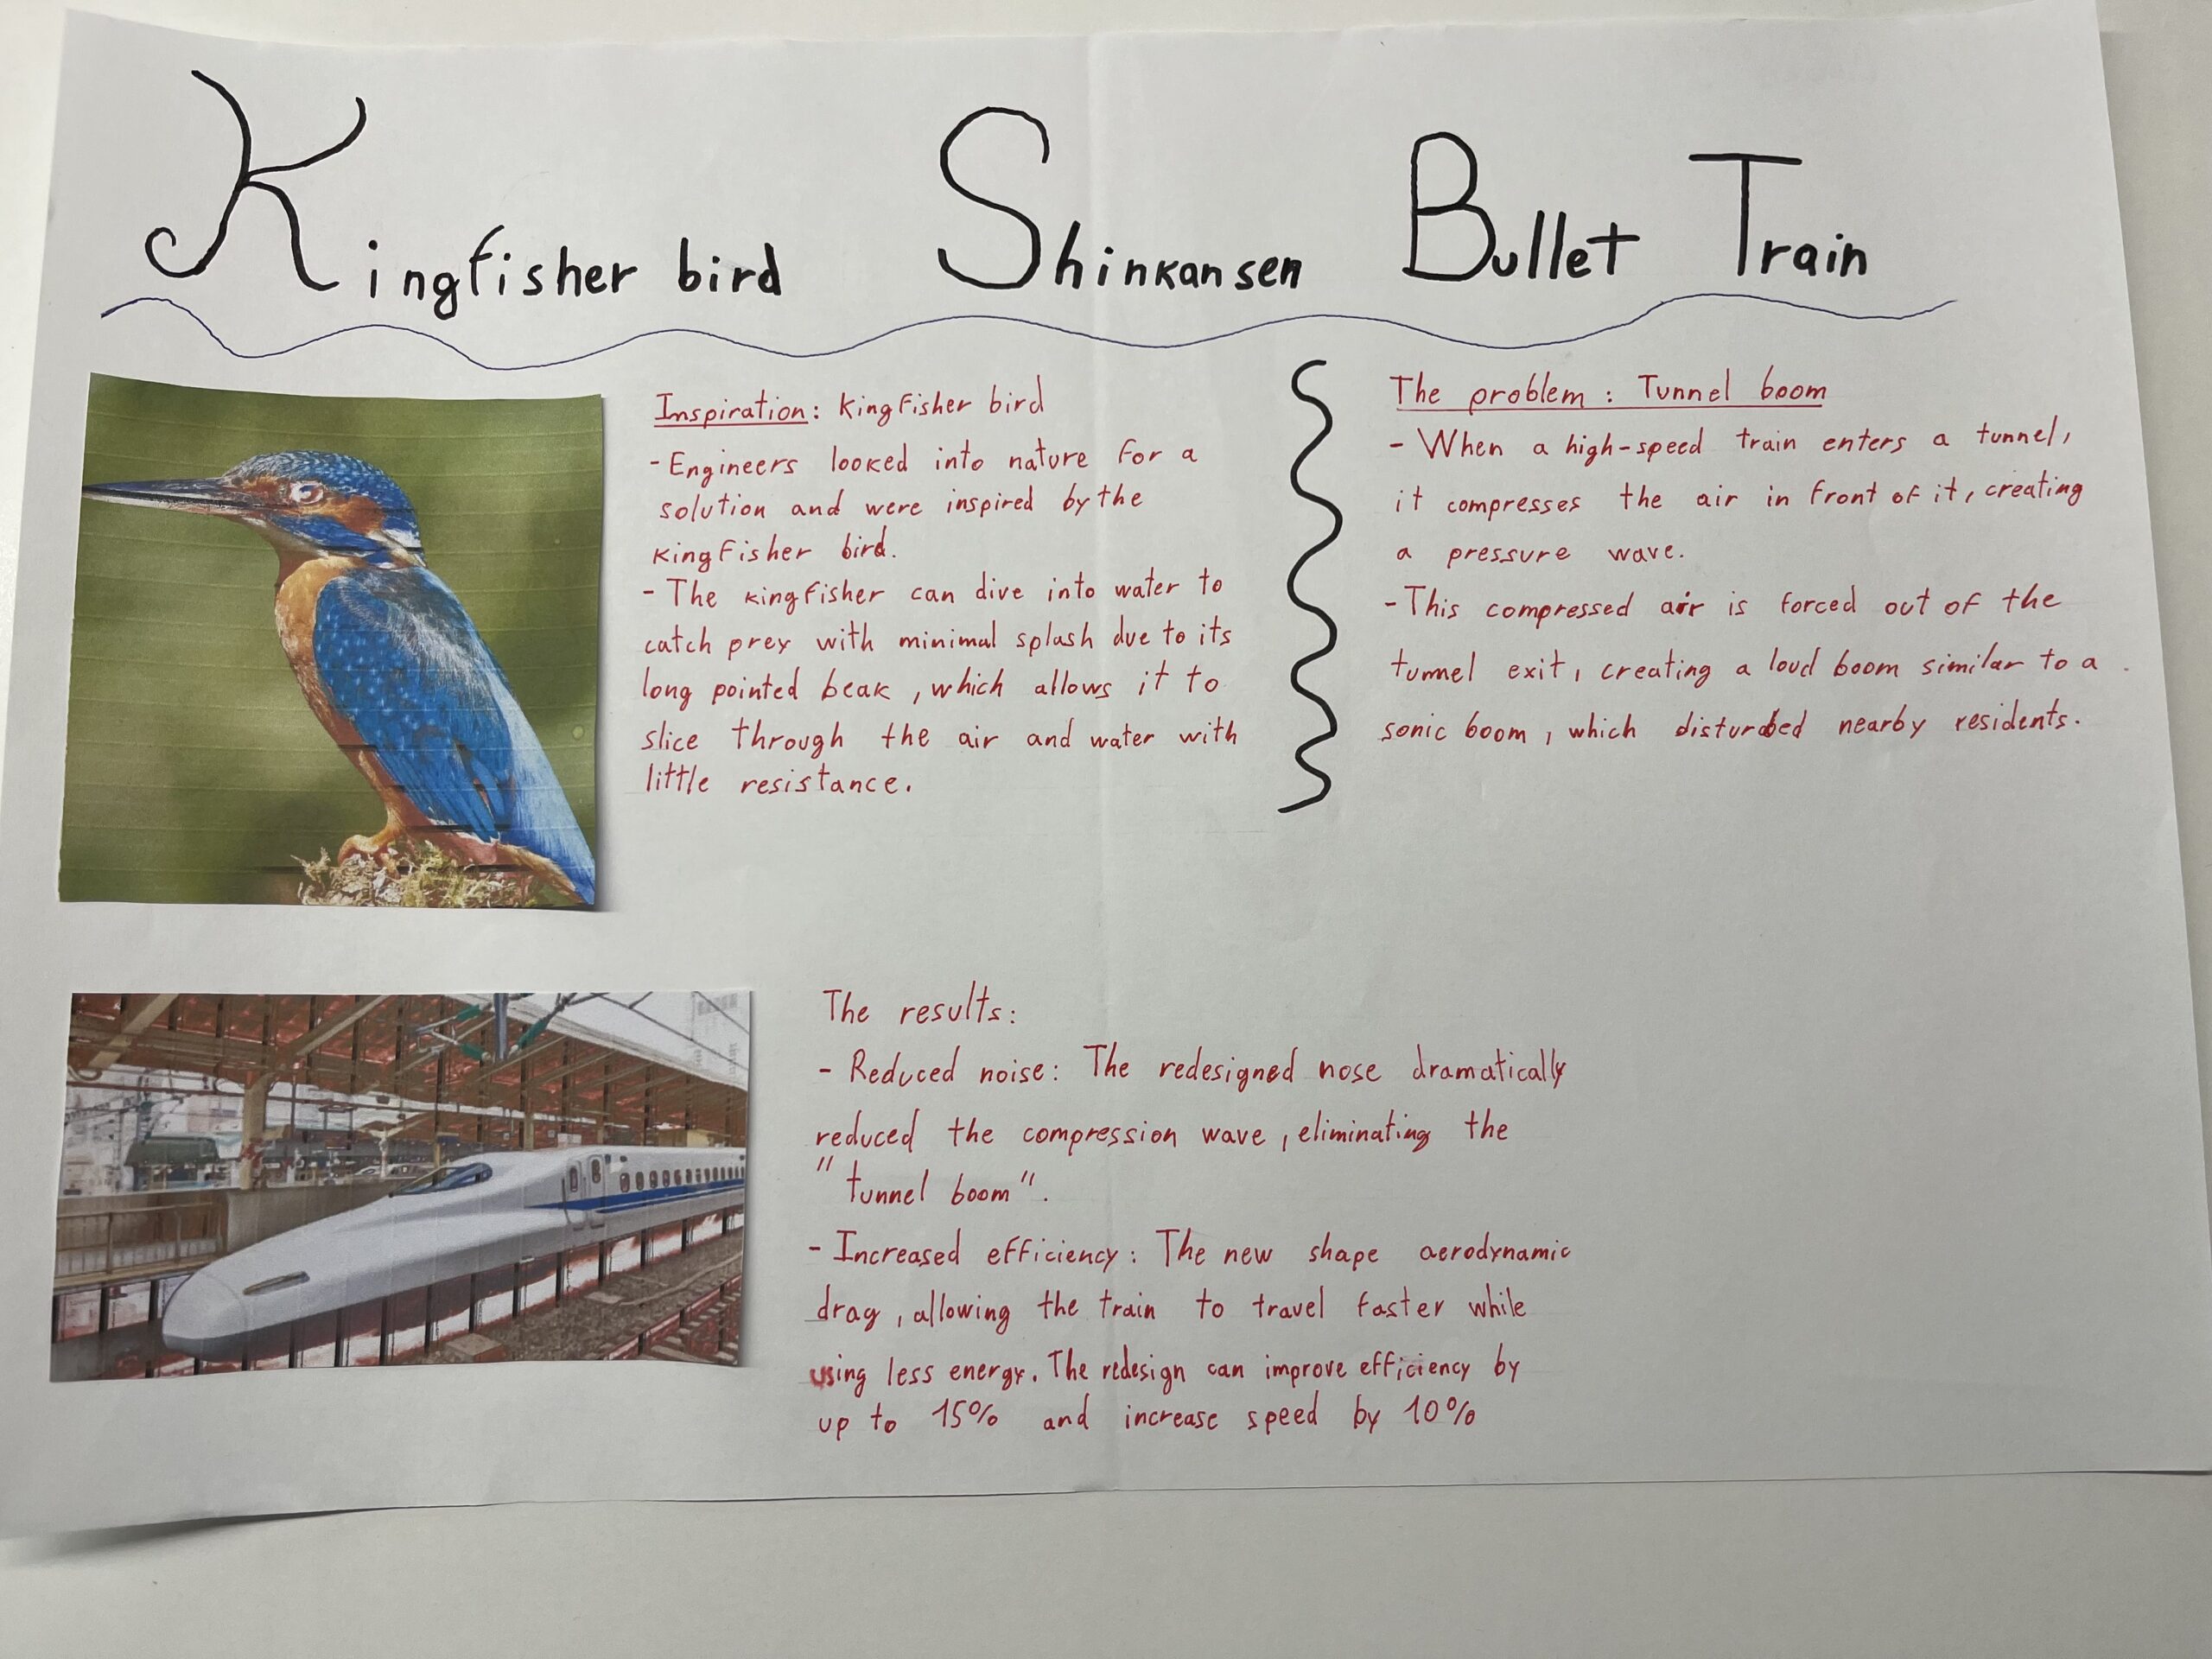 Kingfisher bird Shinkansen Bullet Train
Inspiration: Kingfisher bird
- Engineers looked into nature for a
solution and were inspired by the
kingfisher bird.
- The kingfisher can dive into water to
catch prey with minimal splash due to its
long pointed beak, which allows it to
slice through the air and water with
little resistance.
The problem: Tunnel boom
- When a high-speed train enters a tunnel,
it compresses the air in front of it, creating
a pressure wave.
- This compressed air is forced out of the
tunnel exit, creating a loud boom similar to a
sonic boom, which disturbed nearby residents.
The results:
- Reduced noise: The redesigned nose dramatically
reduced the compression wave, eliminating the
"tunnel boom".
- Increased efficiency: The new shape aerodynamic
drag, allowing the train to travel faster while
using less energy. The redesign can improve efficiency by
up to 15% and increase speed by 10%